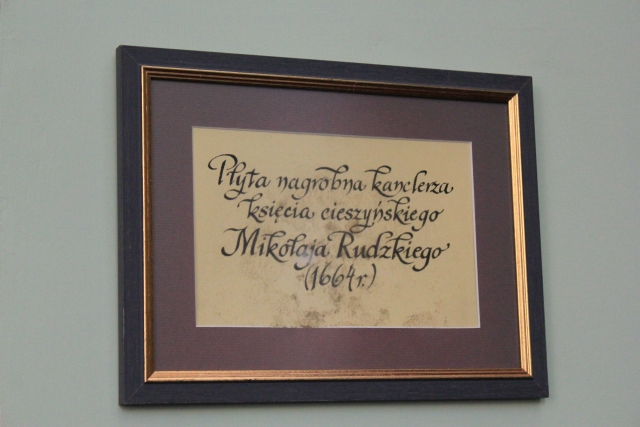 Płyta nagrobna kanclerza
księcia cieszyńskiego
Mikołaja Rudzkiego
(1664r.)